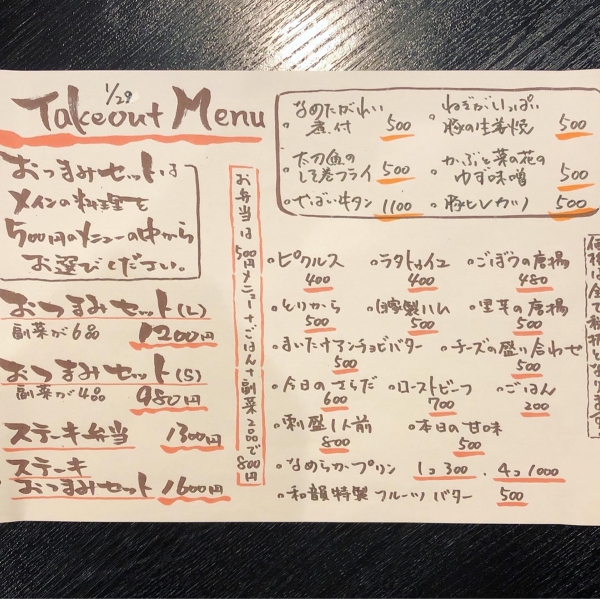 1/29
Takeout Menu
おつまみセットは
メインの料理を
500円のメニューの中から
お選びください。
おつまみセット(L)
副菜が6品 1200円
おつまみセット(S)
副菜が4品 980円
ステーキ弁当 1300円
ステーキ
おつまみセット 1600円
お弁当は500円メニュー+ごはん+副菜2品で800円
・なめたがれい
煮付 500
・ねぎがいっぱい
豚の生姜焼 500
・太刀魚の
しそ巻フライ 500
・かぶと菜の花の
ゆず味噌 500
・でばい牛タン 1100
・豚ヒレカツ 500
・ピクルス 400
・ラタトゥイユ 400
・ごぼうの唐揚 480
・とりから 500
・自家製ハム 500
・里芋の唐揚 500
・まいたけアンチョビバター 500
・チーズの盛り合わせ 500
・今日のさらだ 600
・ローストビーフ 700
・ごはん 200
・刺盛1人前 800
・本日の甘味 500
・なめらかプリン 1コ300 . 4コ1000
・和韻特製フルーツバター 500
価格は全て税抜となります